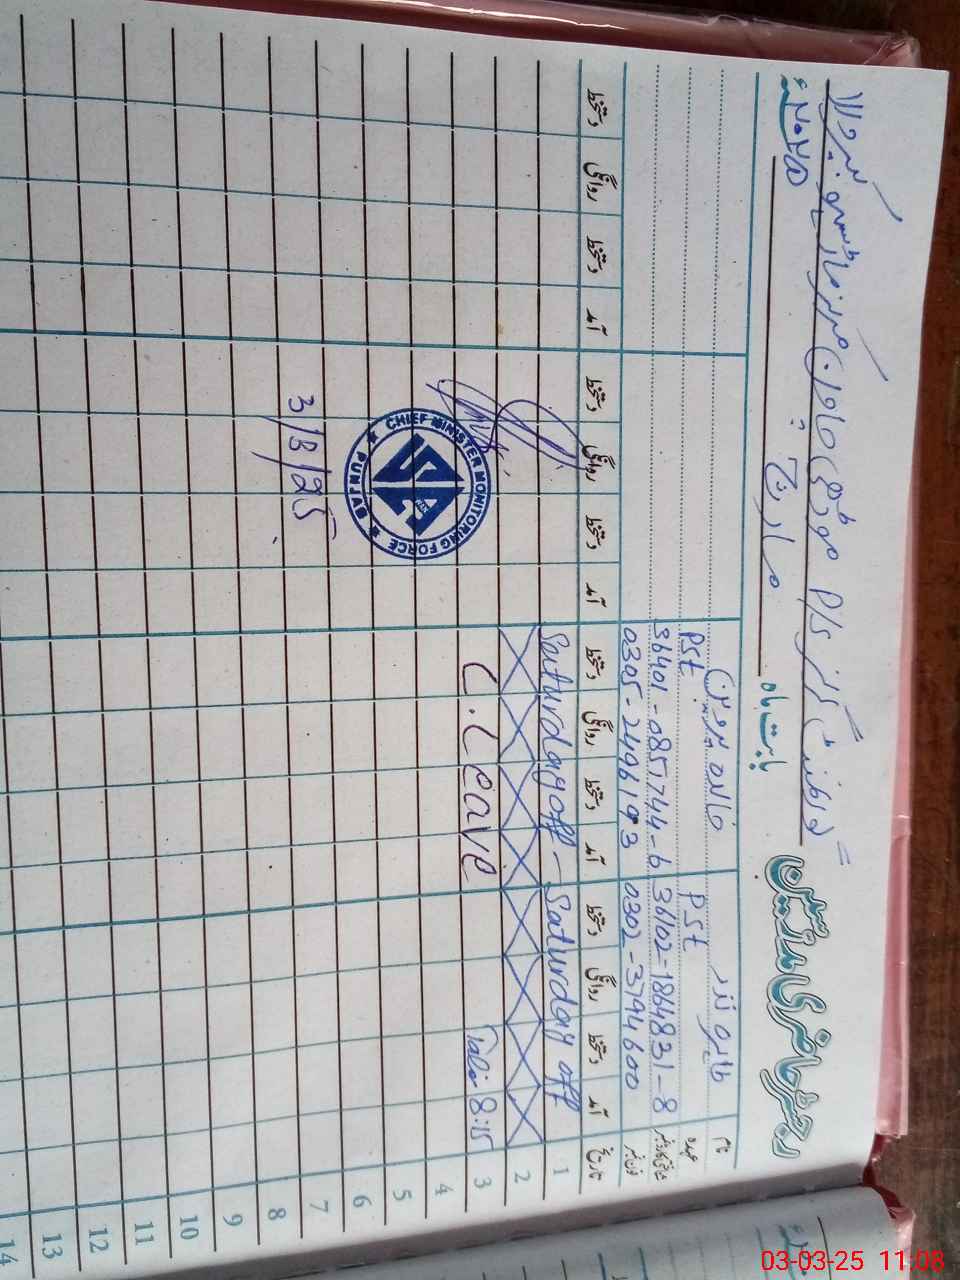 رجسٹر حاضری مدرسین
گورنمنٹ گرلز P/S
بابت ماہ مارچ ۲۰۲۵ء
نام
طاہرہ نذر
خالدہ پروین
عہدہ
Pst
Pst
شناختی کارڈ نمبر
36102-1864831-8
36401-0851744-6
فون نمبر
0302-3794600
0305-2496193
تاریخ آمد دستخط روانگی دستخط آمد دستخط روانگی دستخط آمد دستخط روانگی دستخط آمد دستخط روانگی دستخط
1 Saturday off - Saturday off
2
3 8:15 C.Leave
4
5
6
7
8
9
10
11
12
13
14
CHIEF MINISTER MONITORING FORCE
PUNJAB
3/3/25
03-03-25 11:08